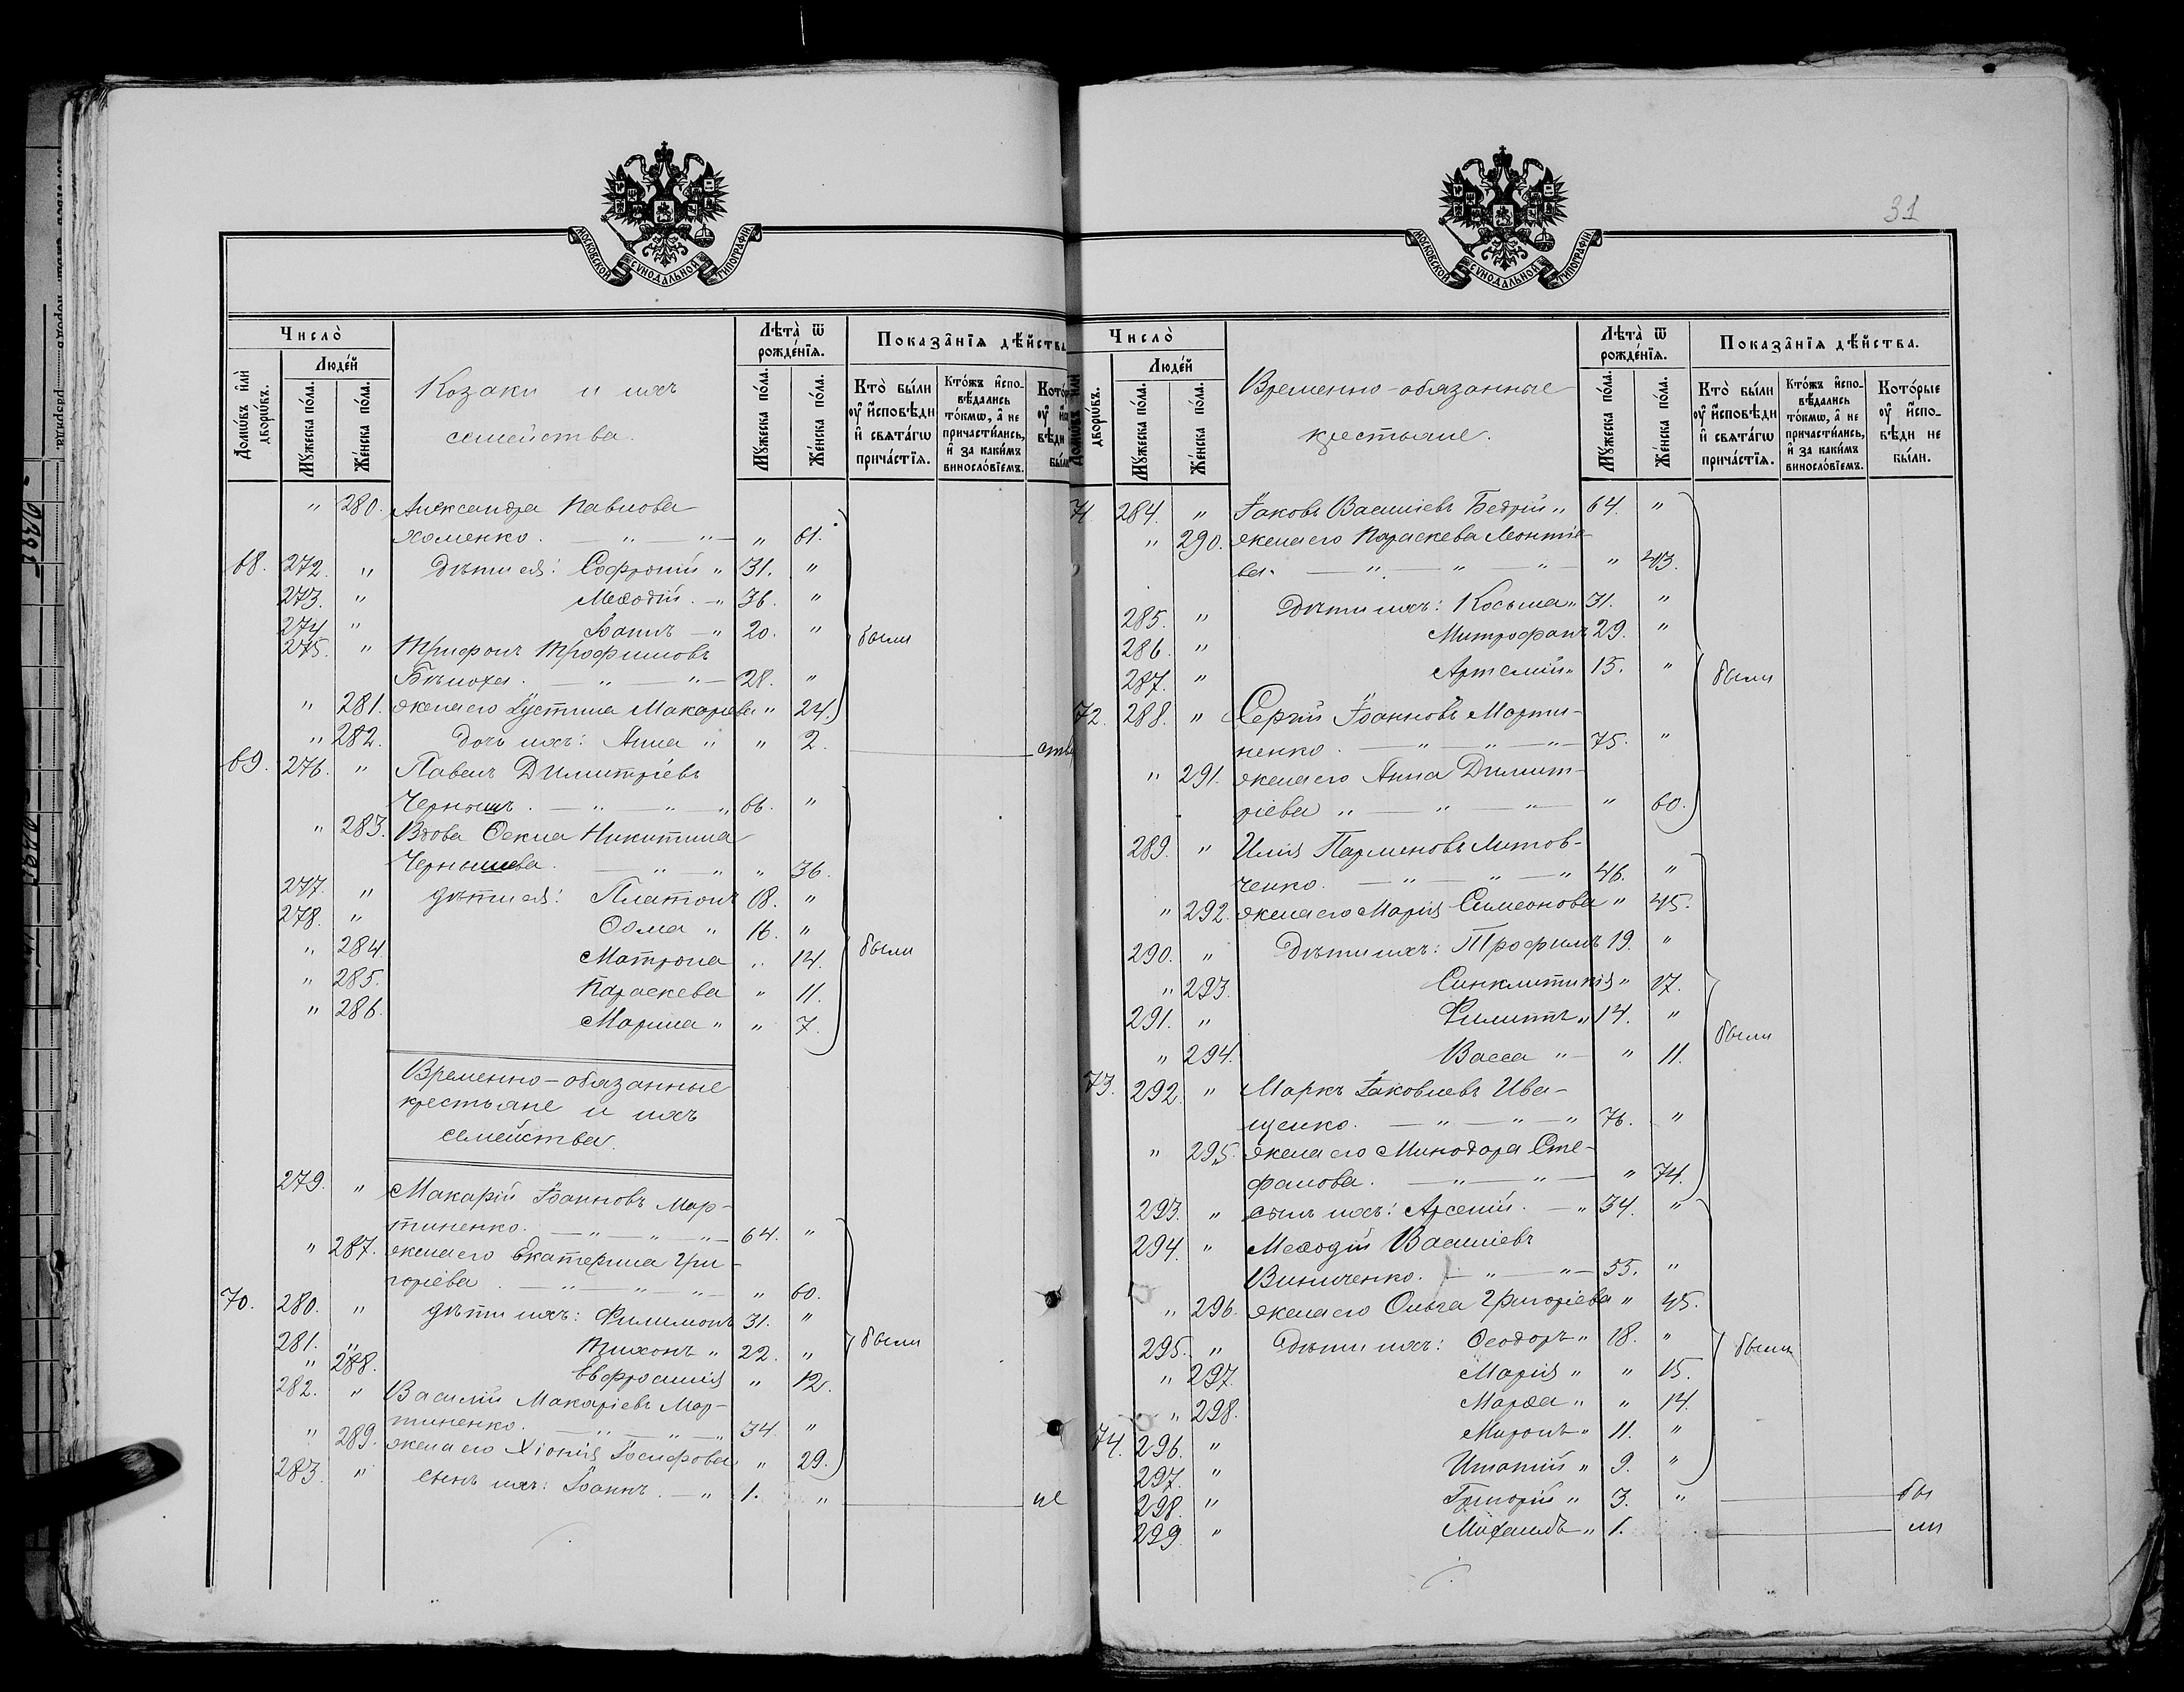 МОСКОВСКОЙ СѴНОДАЛЬНОЙ ТИПОГРАФІИ
Число̀
Людéй
Домѡ́въ и҆лѝ дворѡ́въ.
Мꙋ́жеска по́ла.
Же́нска по́ла.
Козаки и ихъ
семейства.
Лѣта̀ ѿ рожде́нїѧ.
Мꙋ́жеска по́ла.
Же́нска по́ла.
Показа̑нїѧ дѣ́йства
Кто̀ бы́ли ᲂу҆ и҆сповѣ́ди и҆ свѧта́гѡ прича́стїѧ.
Кто́жъ и҆спо-вѣ́дались то́кмѡ, а҆ не причасти́лись, и҆ за каки́мъ виносло́вїемъ.
" 280. Александра Павлова
Хоменко. — " — " — " 61.
68. 272. " дѣти ея: Софроній " 31. "
273. " Меѳодій. — " 36. "
274 " Іоаннъ — " 20. " были
275. " Трифонъ Трофимовъ
Бѣлоха. — " — " — 28. "
" 281. жена его Іустина Макаріева " 24.
" 282. дочь ихъ: Анна " " 2.
69. 276. " Павелъ Димитріевъ
Чернышъ. — " — " — " 66. "
" 283. Вдова Ѳекла Никитина
Чернышева. — " — " " 36.
277. " дѣти ея: Платонъ 18. "
278. " Ѳома " 16. "
" 284. Матрона " 14. были
" 285. Параскева " 11.
" 286. Марина " " 7.
Временно-обязанные
крестьяне и ихъ
семейства.
279. " Макарій Іоанновъ Мар-
тиненко. — " — " — " — 64. "
" 287. жена его Екатерина Гри-
горіева. — " — " — " — " 60.
70. 280. " дѣти ихъ: Филимонъ 31. "
281. " Тихонъ " 22. " были
" 288. Евфросинія " 12.
282. " Василій Макаріевъ Мар-
тиненко. — " — " — " 34. "
" 289. жена его Хіонія Іосифова " 29.
283. " сынъ ихъ: Іоаннъ. — " 1. " не
31
МОСКОВСКОЙ СѴНОДАЛЬНОЙ ТИПОГРАФІИ
Число̀
Людéй
дворѡ́въ.
Мꙋ́жеска по́ла.
Же́нска по́ла.
Временно-обязанные
крестьяне.
Лѣта̀ ѿ рожде́нїѧ.
Мꙋ́жеска по́ла.
Же́нска по́ла.
Показа̑нїѧ дѣ́йства.
Кто̀ бы́ли ᲂу҆ и҆сповѣ́ди и҆ свѧта́гѡ прича́стїѧ.
Кто́жъ и҆спо-вѣ́дались то́кмѡ, а҆ не причасти́лись, и҆ за каки́мъ виносло́вїемъ.
Кото́рые ᲂу҆ и҆спо-вѣ́ди не бы́ли.
71 284. " Іаковъ Василіевъ Бедрій " 64. "
" 290. жена его Параскева Леонтіе-
ва. — " — " — " — " 43.
285. " Дѣти ихъ: Косьма " 31. "
286. " Митрофанъ 29. "
287. " Артемій " 15. " были
72. 288. " Сергій Іоанновъ Марти-
ненко. — " — " — " — 75. "
" 291. жена его Анна Димит-
ріева " — " — " — " 60.
289. " Илія Парменовъ Литов-
ченко. — " — " — " 46. "
" 292. жена его Марія Симеонова " 45.
290. " Дѣти ихъ: Трофимъ 19. "
" 293. Синклитикія " 17.
291. " Филиппъ " 14. "
были
" 294. Васса " — " 11.
73. 292. " Маркъ Іаковлевъ Ива-
щенко. — " — " — " 76. "
" 295. жена его Минодора Сте-
фанова. — " — " — " 74.
293. " сынъ ихъ: Арсеній. — " 34. "
294. " Меѳодій Василіевъ
Виниченко. — " — " — 55. "
" 296. жена его Ольга Григоріева " 45.
295. " Дѣти ихъ: Ѳеодоръ " 18. " были
" 297. Марія " " 15.
" 298. Марѳа " " 14.
74. 296. " Миронъ " 11. "
297. " Ипатій " 9. "
298. " Григорій " 3. " бы
299. " Михаилъ " 1. ли